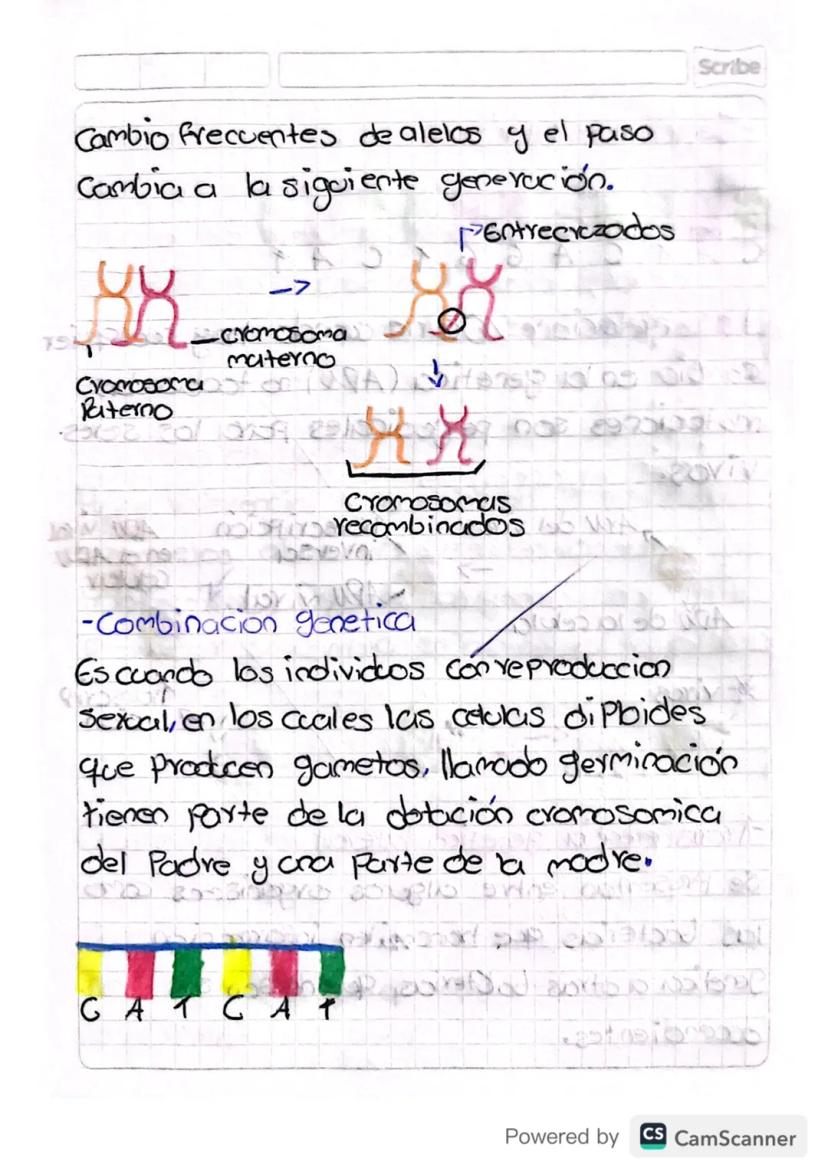 Scribe
Cambio frecuentes de alelos y el paso
Cambia a la siguiente generación.
Entrecruzados
cromosoma
materno
Cromosoma
Paterno
Cromosomas
recombinados
-Combinacion genetica
Es cuando los individuos con reproduccion
sexual, en los cuales las celulas diploides
que producen gametos, llamado germinación
tienen parte de la dotación cromosomica
del Padre y una parte de la madre.
C A T C A T
Powered by CS CamScanner